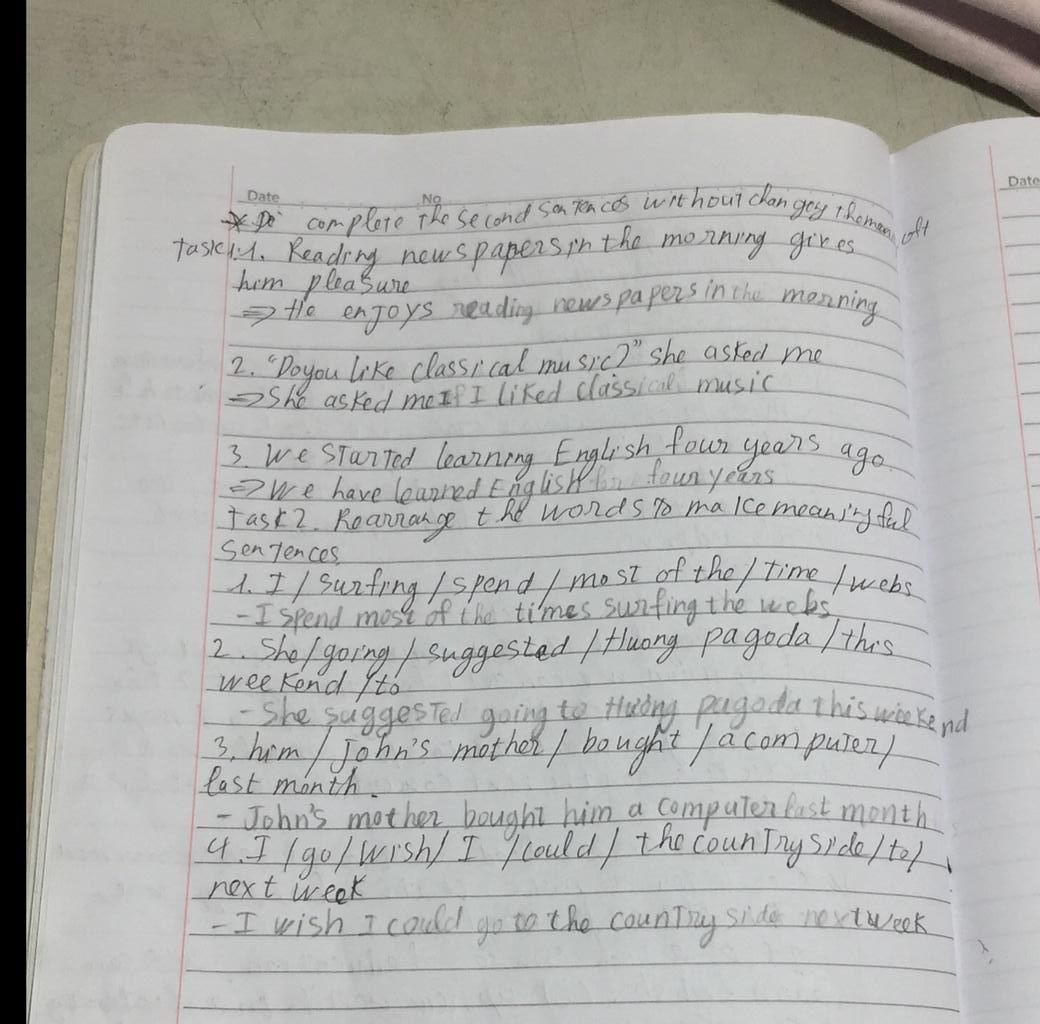 Date No
* complete the second sentences without changey the
Task 1.1. Reading newspapers in the morning gives
him pleasure
=> He enjoys reading newspapers in the morning
2. "Do you like classical music?" she asked me
=> She asked me If I liked classical music
3. We started learning English four years ago.
=> We have learned English for four years
Task 2. Rearrange the words to make meaningful
sentences
1. I / surfing / spend / most of the / time / webs
- I spend most of the times surfing the webs
2. She / going / suggested / Huong pagoda / this
weekend / to
- She suggested going to Hương pagoda this weekend
3. him / John's mother / bought / a computer /
last month.
- John's mother bought him a computer last month
4. I / go / wish / I / could / the countryside / to /
next week
- I wish I could go to the countryside next week
Date